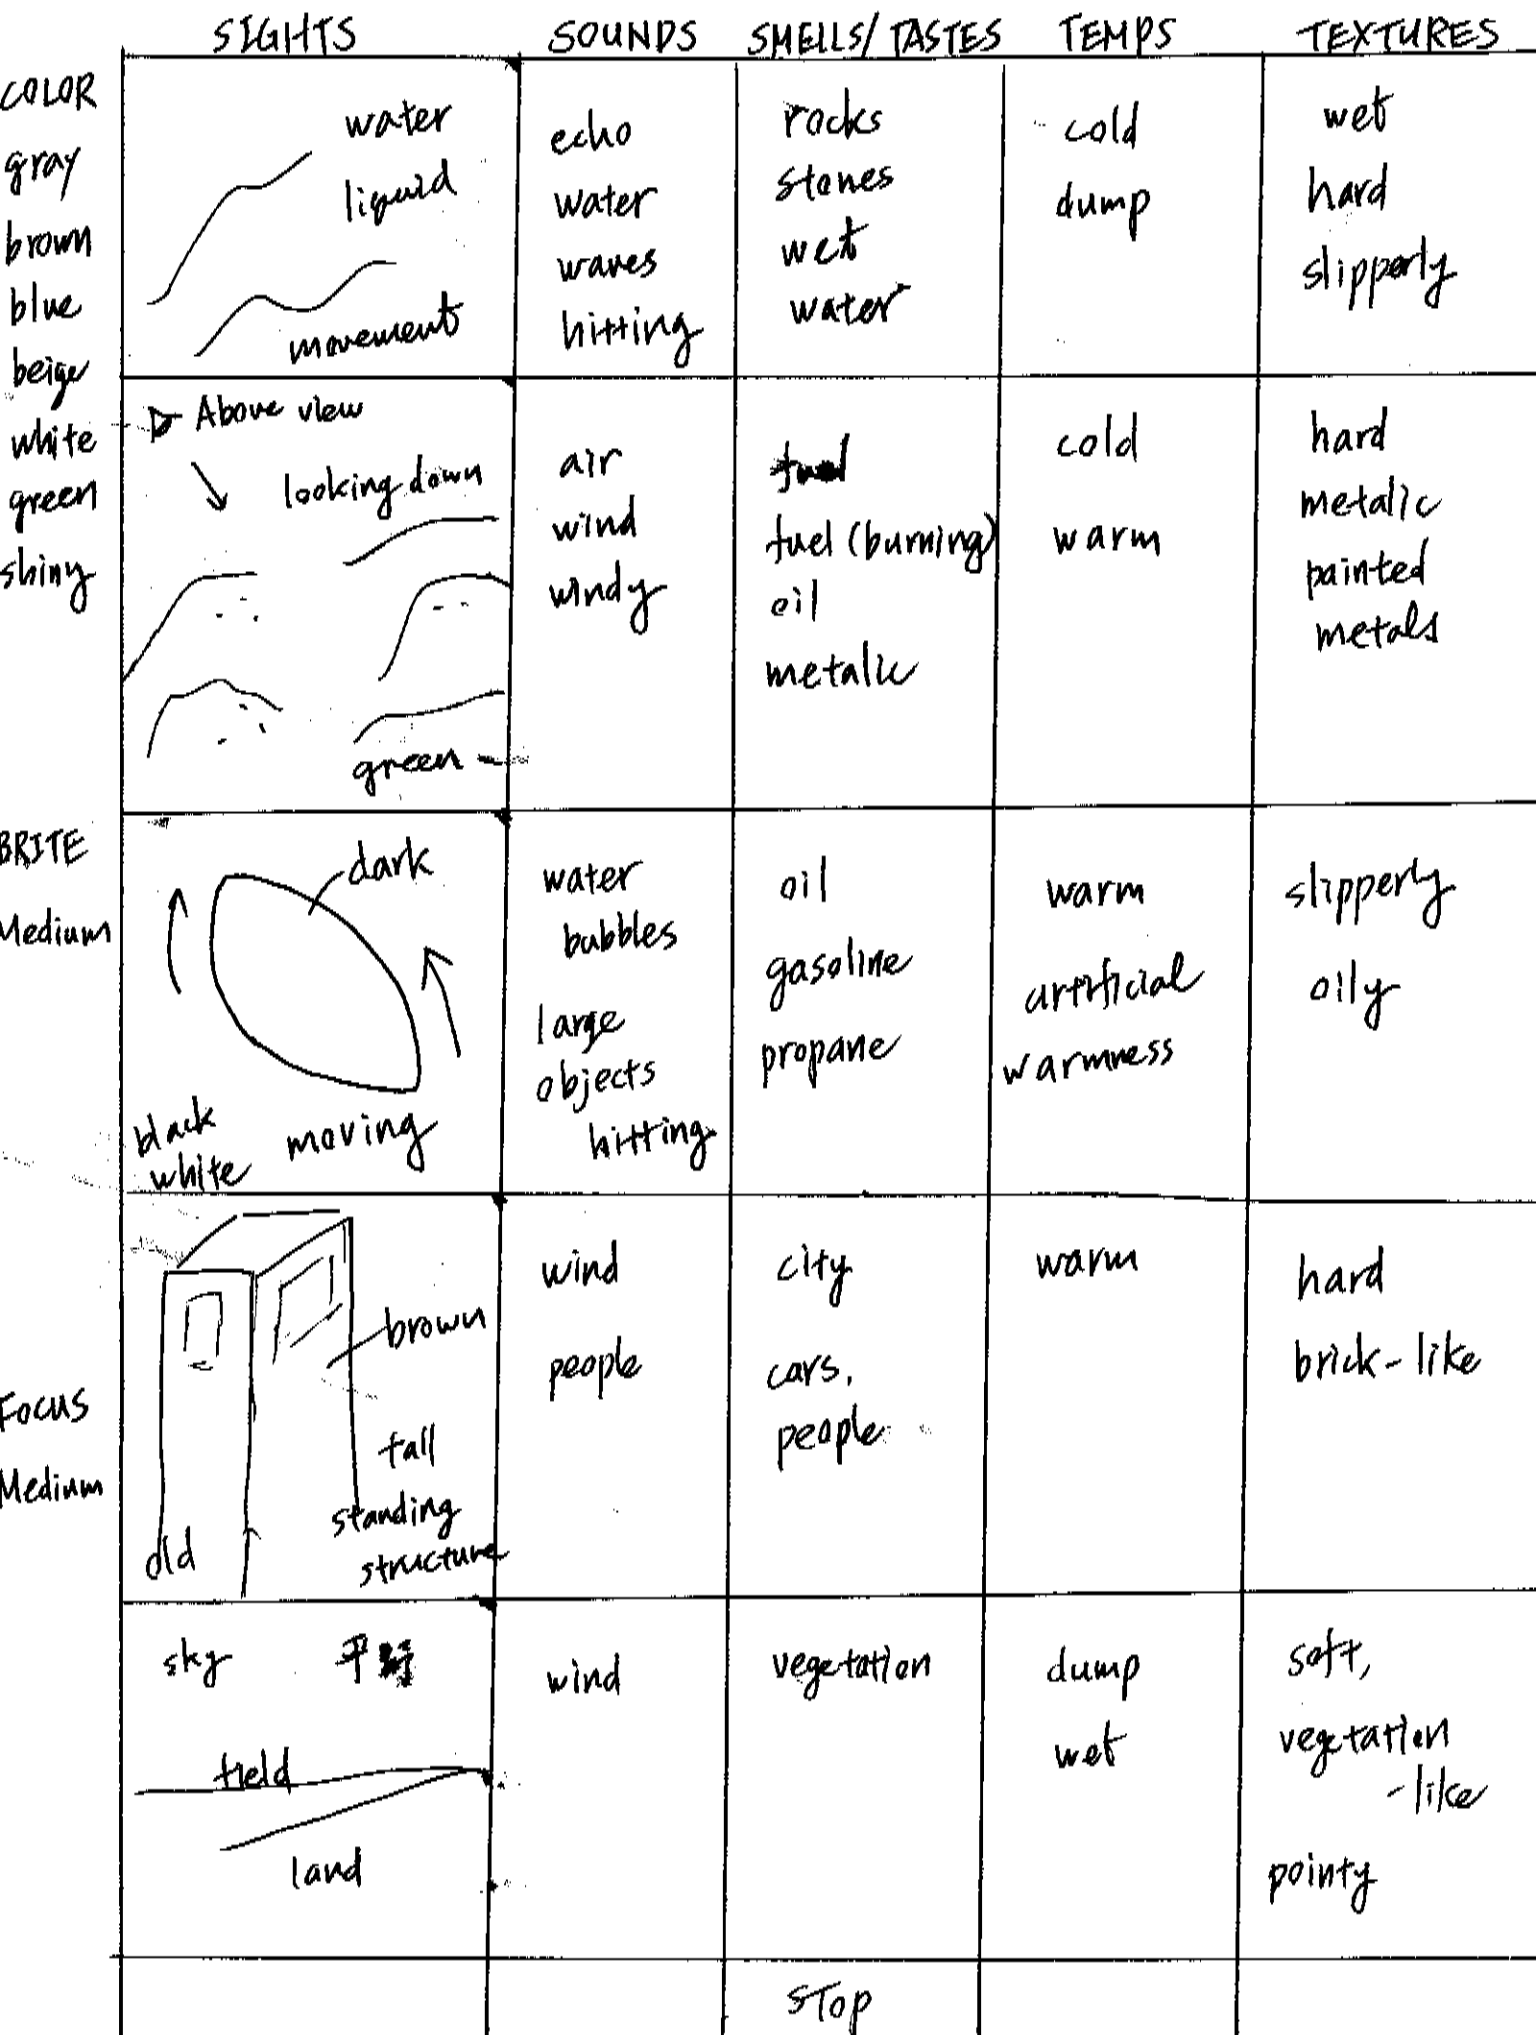 SIGHTS SOUNDS SMELLS/TASTES TEMPS TEXTURES
COLOR
gray
brown
blue
beige
white
green
shiny
water
liquid
movement
echo
water
waves
hitting
rocks
stones
wet
water
cold
dump
wet
hard
slipperly
Above view
looking down
green
air
wind
windy
fuel
fuel (burning)
oil
metalic
cold
warm
hard
metalic
painted
metals
BRITE
Medium
dark
black
white
moving
water
bubbles
large
objects
hitting
oil
gasoline
propane
warm
artificial
warmness
slipperly
oily
FOCUS
Medium
brown
tall
standing
structure
old
wind
people
city
cars,
people
warm
hard
brick-like
sky 平野
field
land
wind
vegetation
dump
wet
soft,
vegetation
-like
pointy
STOP